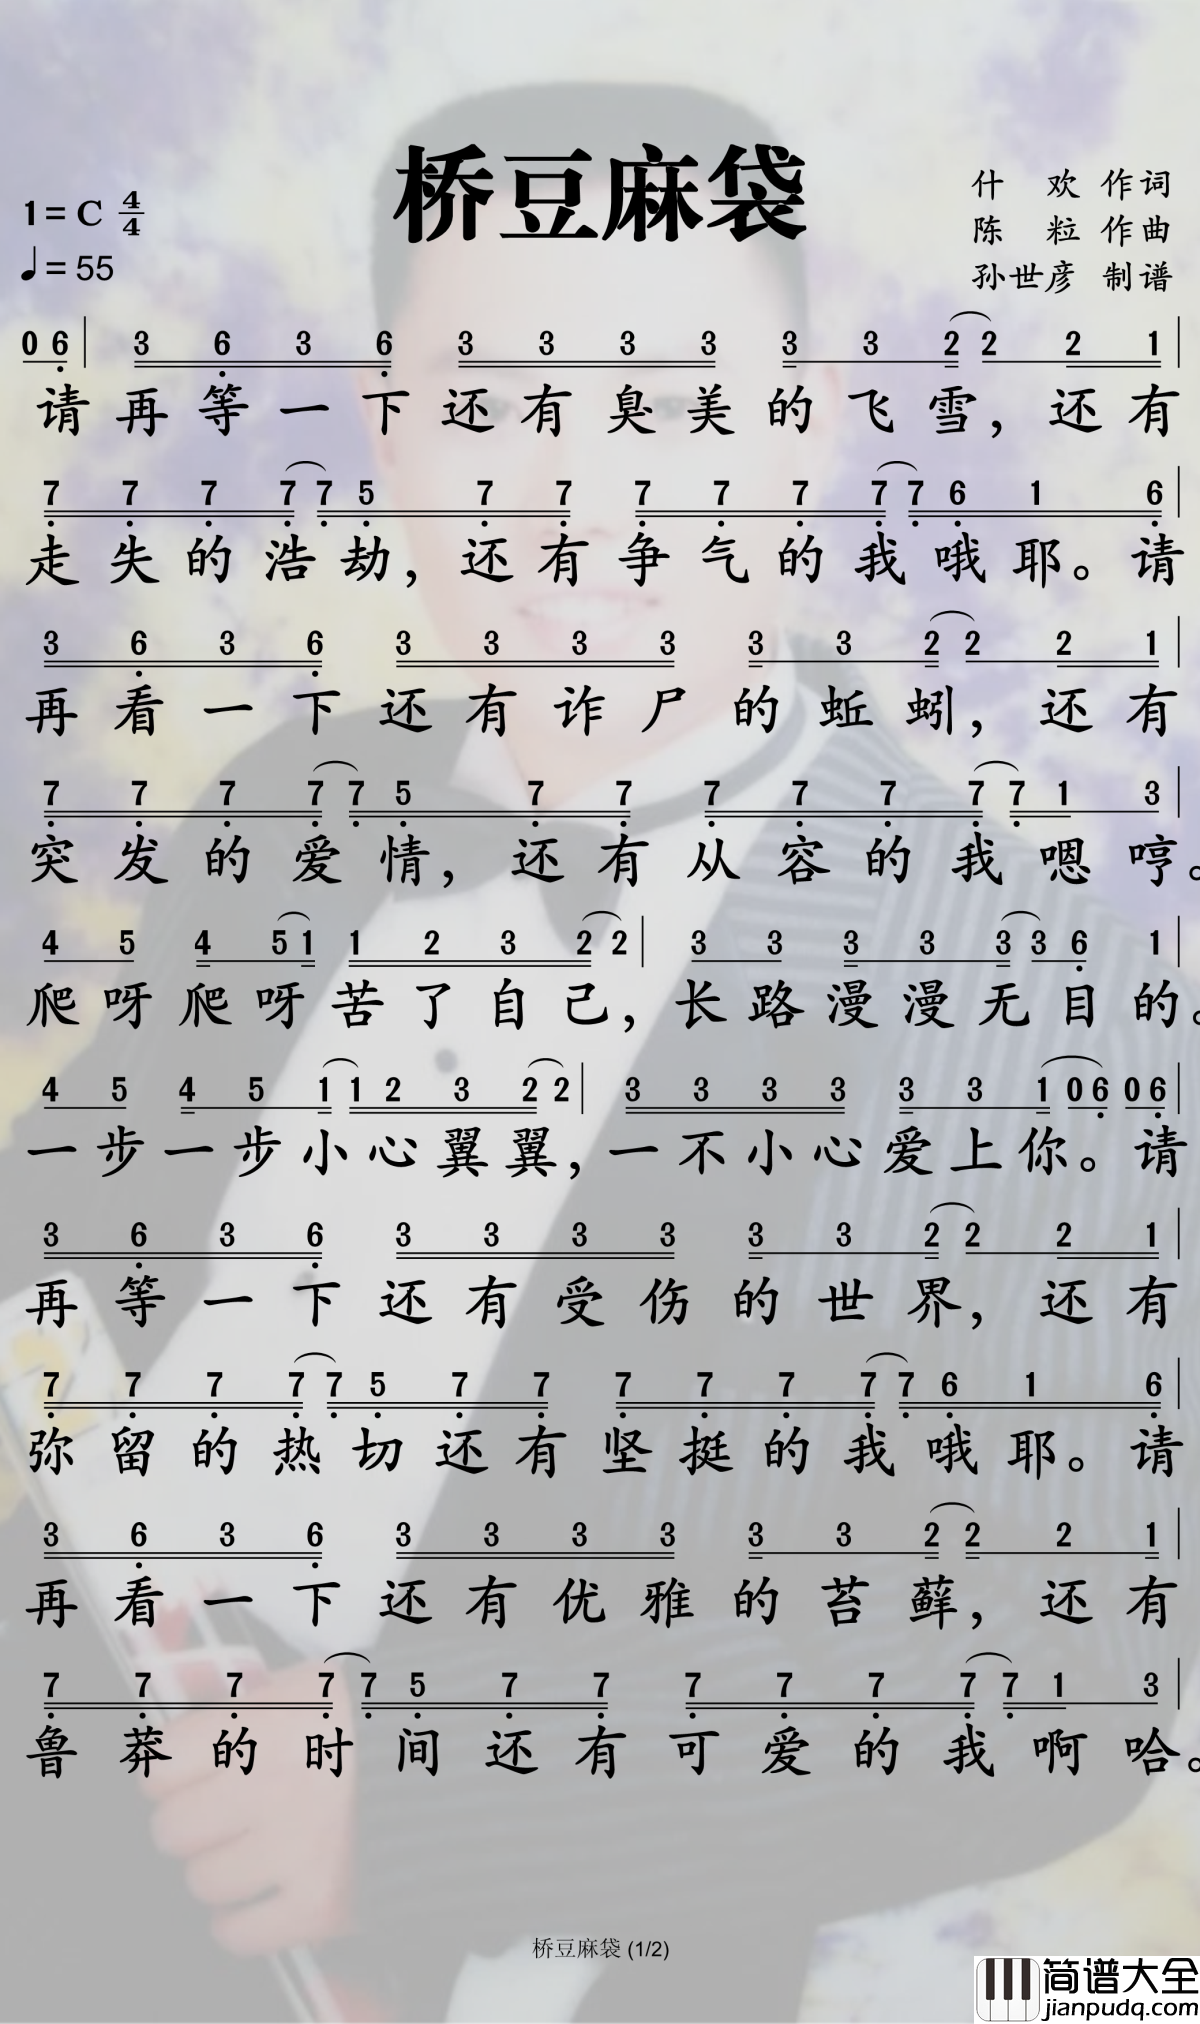 桥豆麻袋
1=C 4/4
♩=55
什 欢 作词
陈 粒 作曲
孙世彦 制谱
0 6 | 3 6 3 6 3 3 3 3 3 3 2 2 2 1 |
请 再 等 一 下 还 有 臭 美 的 飞 雪, 还 有
7 7 7 7 7 5 7 7 7 7 7 7 7 6 1 6 |
走 失 的 浩 劫, 还 有 争 气 的 我 哦 耶。请
3 6 3 6 3 3 3 3 3 3 2 2 2 1 |
再 看 一 下 还 有 诈 尸 的 蚯 蚓, 还 有
7 7 7 7 7 5 7 7 7 7 7 7 7 1 3 |
突 发 的 爱 情, 还 有 从 容 的 我 嗯 哼。
4 5 4 5 1 1 2 3 2 2 | 3 3 3 3 3 3 6 1 |
爬 呀 爬 呀 苦 了 自 己, 长 路 漫 漫 无 目 的。
4 5 4 5 1 1 2 3 2 2 | 3 3 3 3 3 3 1 0 6 0 6 |
一 步 一 步 小 心 翼 翼, 一 不 小 心 爱 上 你。请
3 6 3 6 3 3 3 3 3 3 2 2 2 1 |
再 等 一 下 还 有 受 伤 的 世 界, 还 有
7 7 7 7 7 5 7 7 7 7 7 7 7 6 1 6 |
弥 留 的 热 切 还 有 坚 挺 的 我 哦 耶。请
3 6 3 6 3 3 3 3 3 3 2 2 2 1 |
再 看 一 下 还 有 优 雅 的 苔 藓, 还 有
7 7 7 7 7 5 7 7 7 7 7 7 7 1 3 |
鲁 莽 的 时 间 还 有 可 爱 的 我 啊 哈。
桥豆麻袋 (1/2)
简谱大全
jianpudq.com